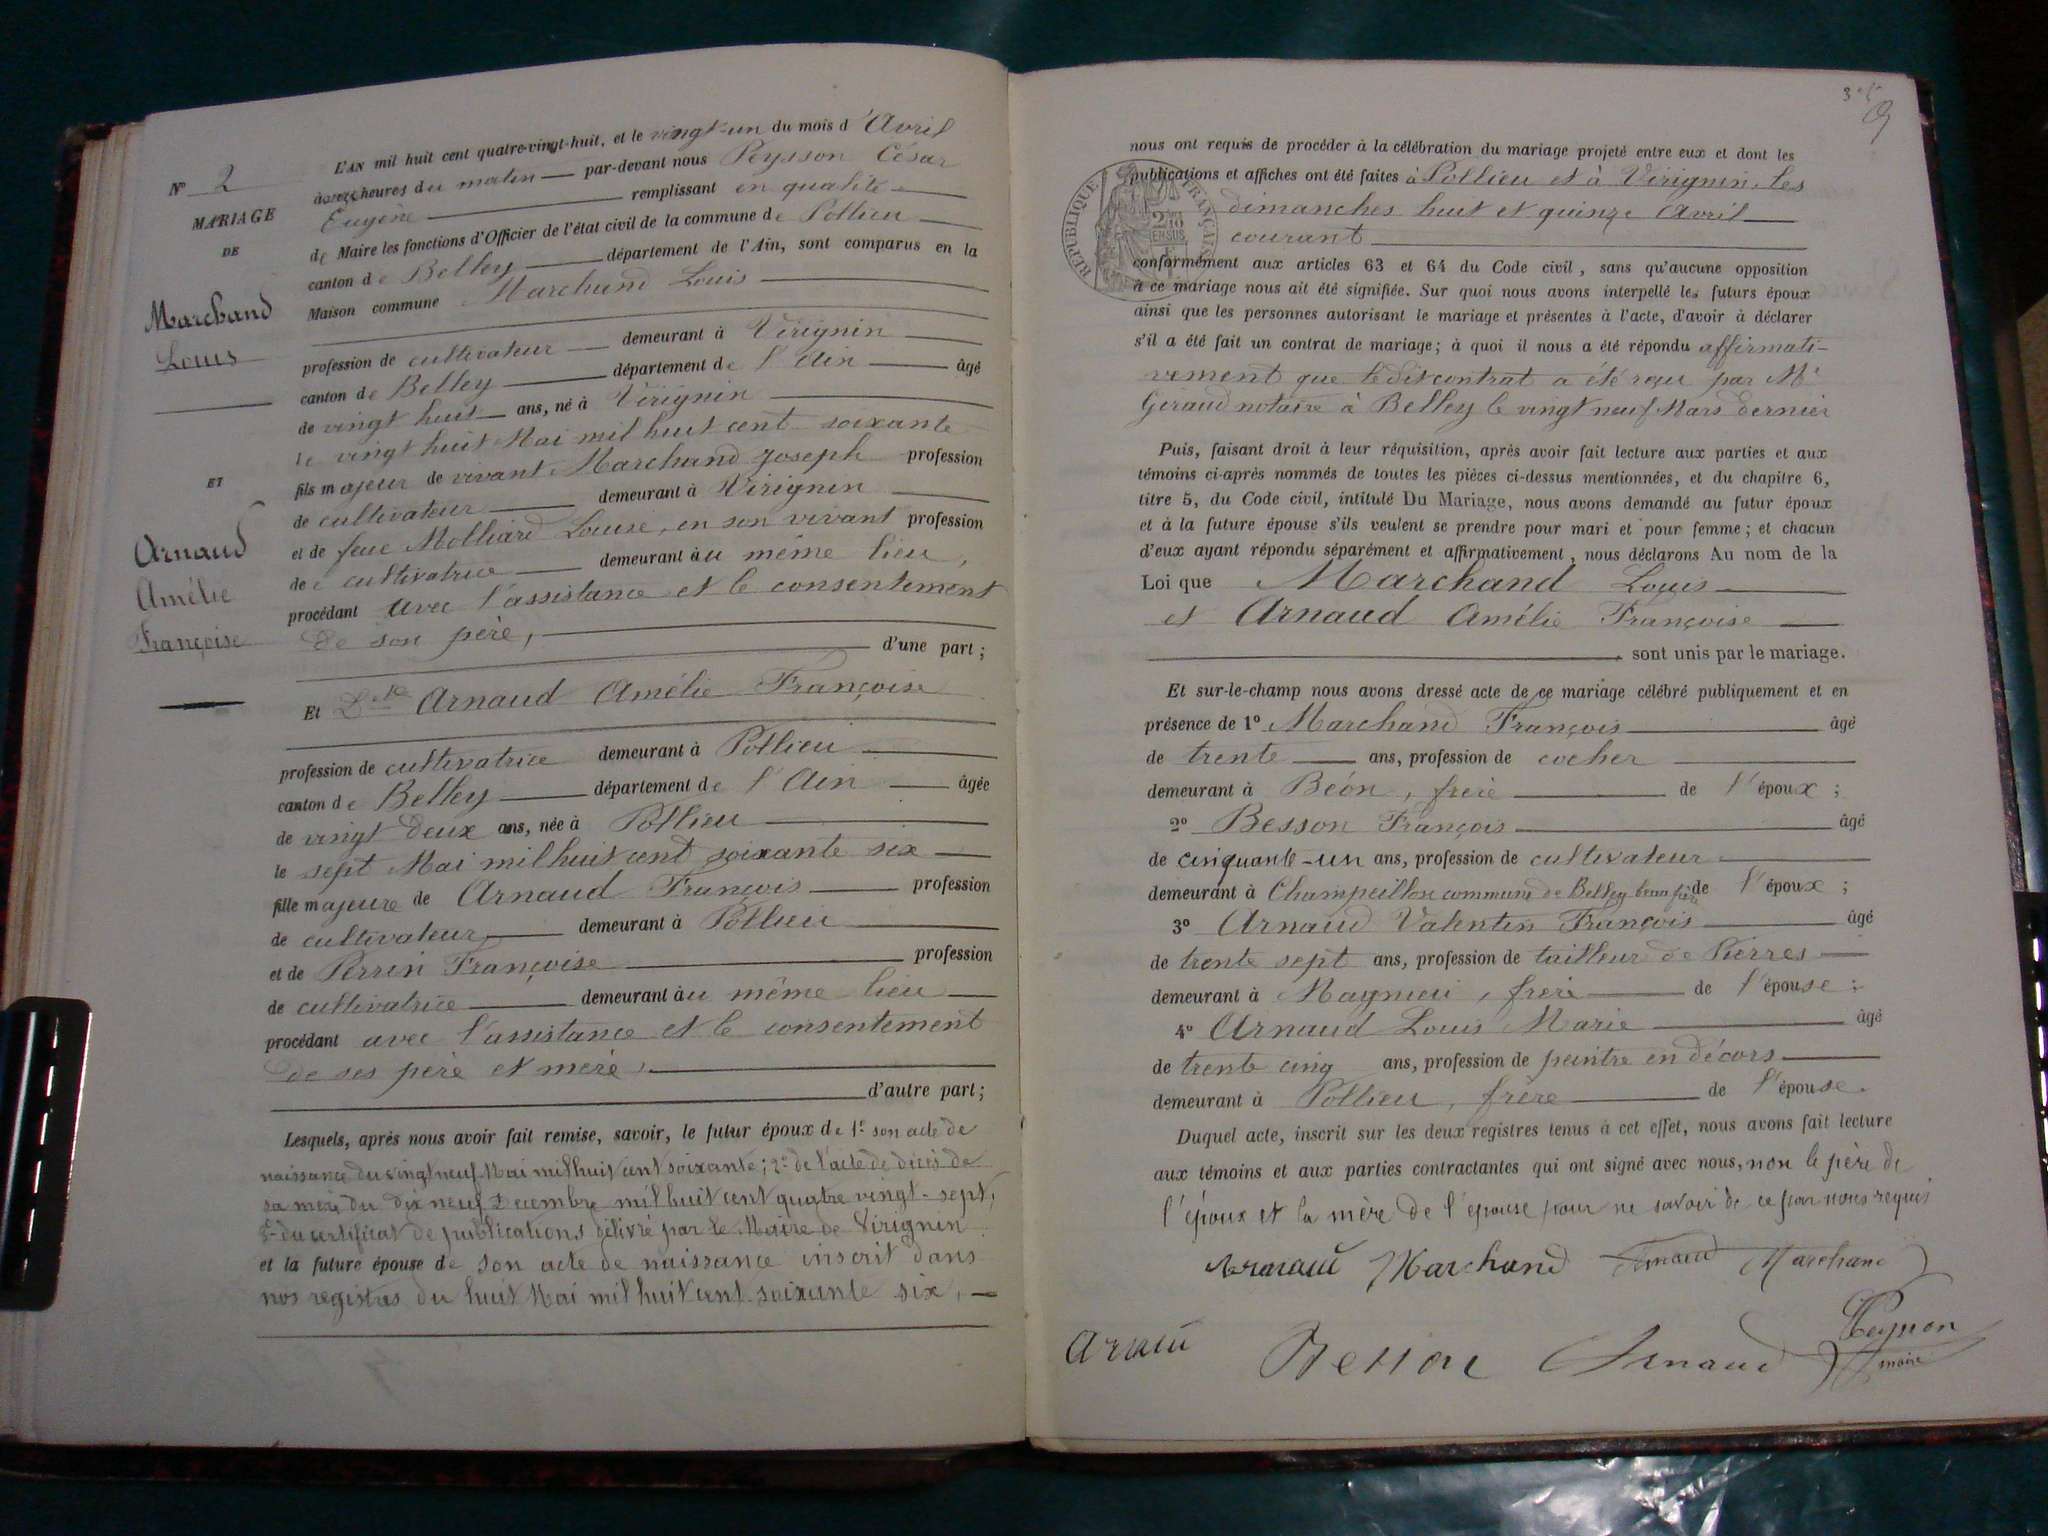 N° 2
MARIAGE
DE
Marchand
Louis
ET
Arnaud
Amélie
Françoise
L'AN mil huit cent quatre-vingt-huit, et le vingt-un du mois d'Avril
à onze heures du matin par-devant nous Peysson César
Eugène remplissant en qualité
de Maire les fonctions d'Officier de l'état civil de la commune de Pollieu
canton de Belley département de l'Ain, sont comparus en la
Maison commune Marchand Louis
profession de cultivateur demeurant à Virignin
canton de Belley département de l'Ain âgé
de vingt huit ans, né à Virignin
le vingt huit Mai mil huit cent soixante
fils majeur de vivant Marchand Joseph profession
de cultivateur demeurant à Virignin
et de feue Molliard Louise, en son vivant profession
de cultivatrice demeurant au même lieu,
procédant avec l'assistance et le consentement
de son père, d'une part ;
Et Dlle Arnaud Amélie Françoise
profession de cultivatrice demeurant à Pollieu
canton de Belley département de l'Ain âgée
de vingt deux ans, née à Pollieu
le sept Mai mil huit cent soixante six
fille majeure de Arnaud François profession
de cultivateur demeurant à Pollieu
et de Perrin Françoise profession
de cultivatrice demeurant au même lieu
procédant avec l'assistance et le consentement
de ses père et mère,
d'autre part ;
Lesquels, après nous avoir fait remise, savoir, le futur époux de 1° son acte de
naissance du vingt neuf Mai mil huit cent soixante ; 2° de l'acte de décès de
sa mère du dix neuf Décembre mil huit cent quatre vingt-sept,
3° du certificat de publications délivré par le Maire de Virignin
et la future épouse de son acte de naissance inscrit dans
nos registres du huit Mai mil huit cent soixante six,
nous ont requis de procéder à la célébration du mariage projeté entre eux et dont les
publications et affiches ont été faites à Pollieu et à Virignin, les
dimanches huit et quinze Avril
courant
RÉPUBLIQUE FRANÇAISE
conformément aux articles 63 et 64 du Code civil, sans qu'aucune opposition
à ce mariage nous ait été signifiée. Sur quoi nous avons interpellé les futurs époux
ainsi que les personnes autorisant le mariage et présentes à l'acte, d'avoir à déclarer
s'il a été fait un contrat de mariage ; à quoi il nous a été répondu affirmati-
vement que le dit contrat a été reçu par Me
Giraud notaire à Belley le vingt neuf Mars dernier
Puis, faisant droit à leur réquisition, après avoir fait lecture aux parties et aux
témoins ci-après nommés de toutes les pièces ci-dessus mentionnées, et du chapitre 6,
titre 5, du Code civil, intitulé Du Mariage, nous avons demandé au futur époux
et à la future épouse s'ils veulent se prendre pour mari et pour femme ; et chacun
d'eux ayant répondu séparément et affirmativement, nous déclarons Au nom de la
Loi que Marchand Louis
et Arnaud Amélie Françoise
sont unis par le mariage.
Et sur-le-champ nous avons dressé acte de ce mariage célébré publiquement et en
présence de 1° Marchand François âgé
de trente ans, profession de cocher
demeurant à Béon, frère de l'époux ;
2° Besson François âgé
de cinquante-un ans, profession de cultivateur
demeurant à Champeillon commune de Belley beau père de l'époux ;
3° Arnaud Valentin François âgé
de trente sept ans, profession de tailleur de Pierres
demeurant à Magnieu, frère de l'épouse ;
4° Arnaud Louis Marie âgé
de trente cinq ans, profession de peintre en décors
demeurant à Pollieu, frère de l'épouse.
Duquel acte, inscrit sur les deux registres tenus à cet effet, nous avons fait lecture
aux témoins et aux parties contractantes qui ont signé avec nous, non le père de
l'époux et la mère de l'épouse pour ne savoir de ce par nous requis
Arnaud Marchand Arnaud Marchand
Peysson
maire
Besson Arnaud